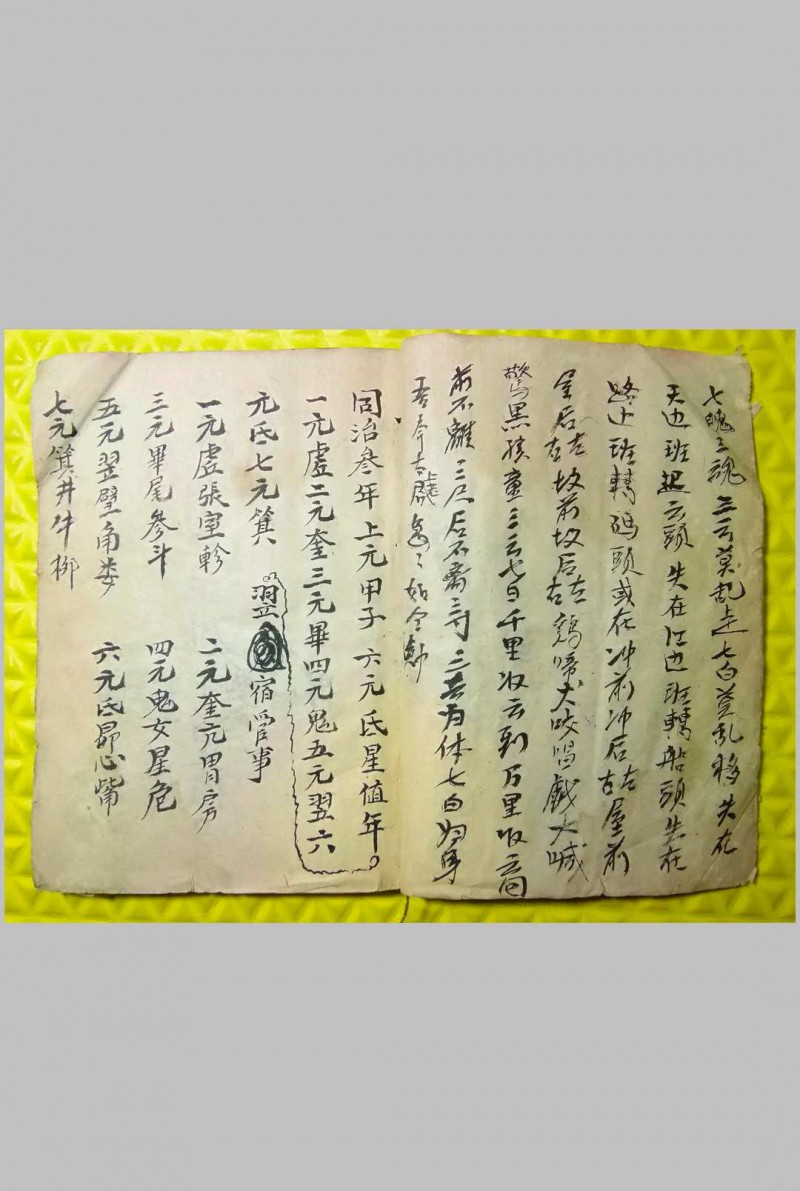 七魄三魂三云莫乱走七白莫乱移失在
天边班起云頭失在江边班轉船頭失在
路上班轉碼頭或在冲前冲后左右屋前
屋后左右坟前坟后左右鷄啼犬咬唱戯大喊
驚黑孩童三云七白千里收云到万里收云回
前不離三尺后不离三寸三云为体七白归身
吾奉太 急々如令
同治叁年上元甲子六元氐星值年
一元虚二元奎三元畢四元鬼五元翌六
元氐七元箕 翌宿管事
一元虚張室軫 二元奎亢胃房
三元畢尾參斗 四元鬼女星危
五元翌壁角娄 六元氐昴心觜
七元箕井牛柳